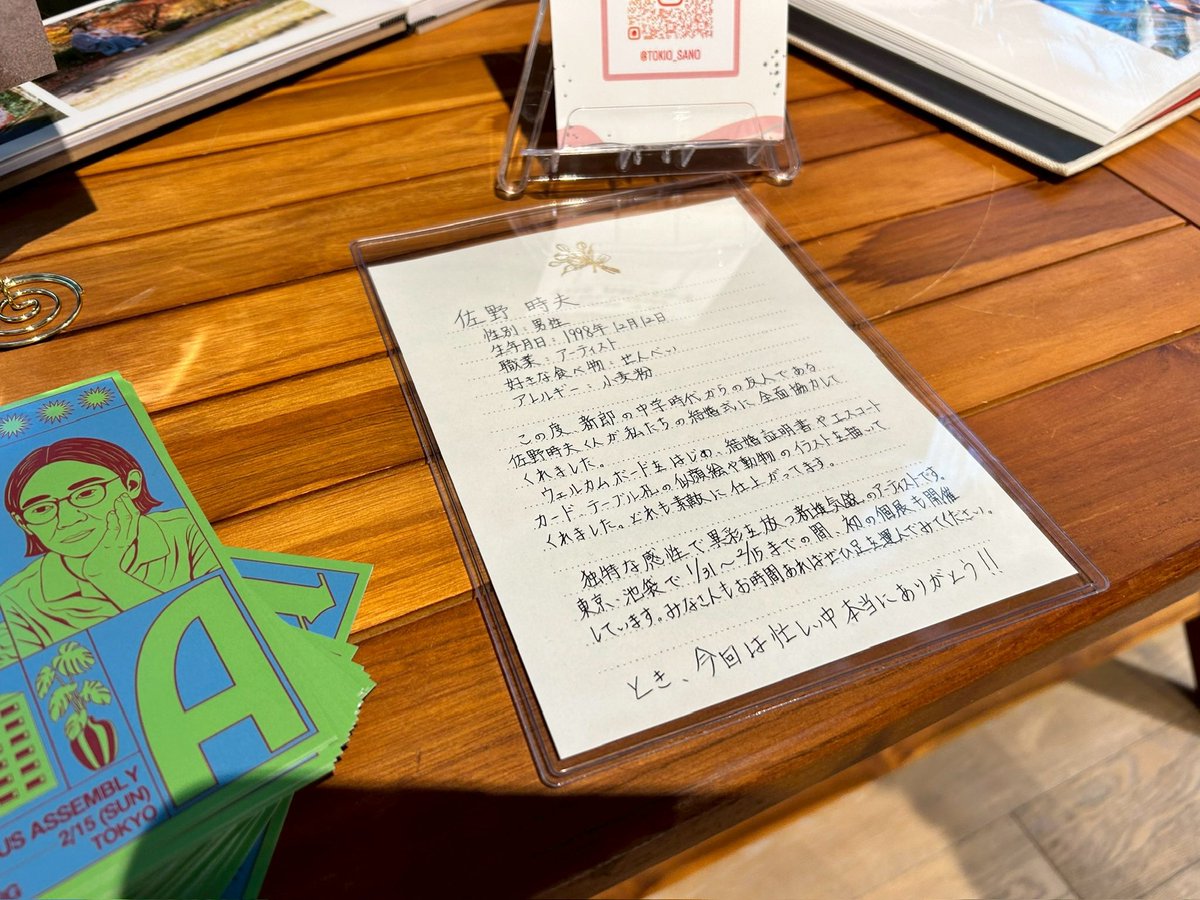 @TOKIO_SANO
佐野 時夫
性別：男性
生年月日：1998年12月12日
職業：アーティスト
好きな食べ物：せんべい
アレルギー：小麦粉
この度、新郎の中学時代からの友人である
佐野時夫くんが私たちの結婚式に全面協力して
くれました。
ウェルカムボードをはじめ、結婚証明書やエスコート
カード、テーブル札の似顔絵や動物のイラストを描いて
くれました。どれも素敵に仕上がってます。
独特な感性で異彩を放つ新進気鋭のアーティストです。
東京、池袋で1/31〜2/15までの間、初の個展も開催
しています。みなさんもお時間あればぜひ足を運んでみてください。
とき、今回は忙しい中本当にありがとう!!
A
US ASSEMBLY
2/15 (SUN)
TOKYO